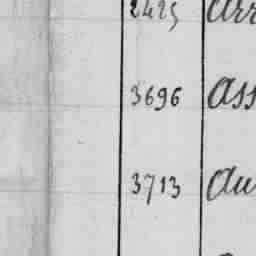 2425 arr
3696 ass
3713 au